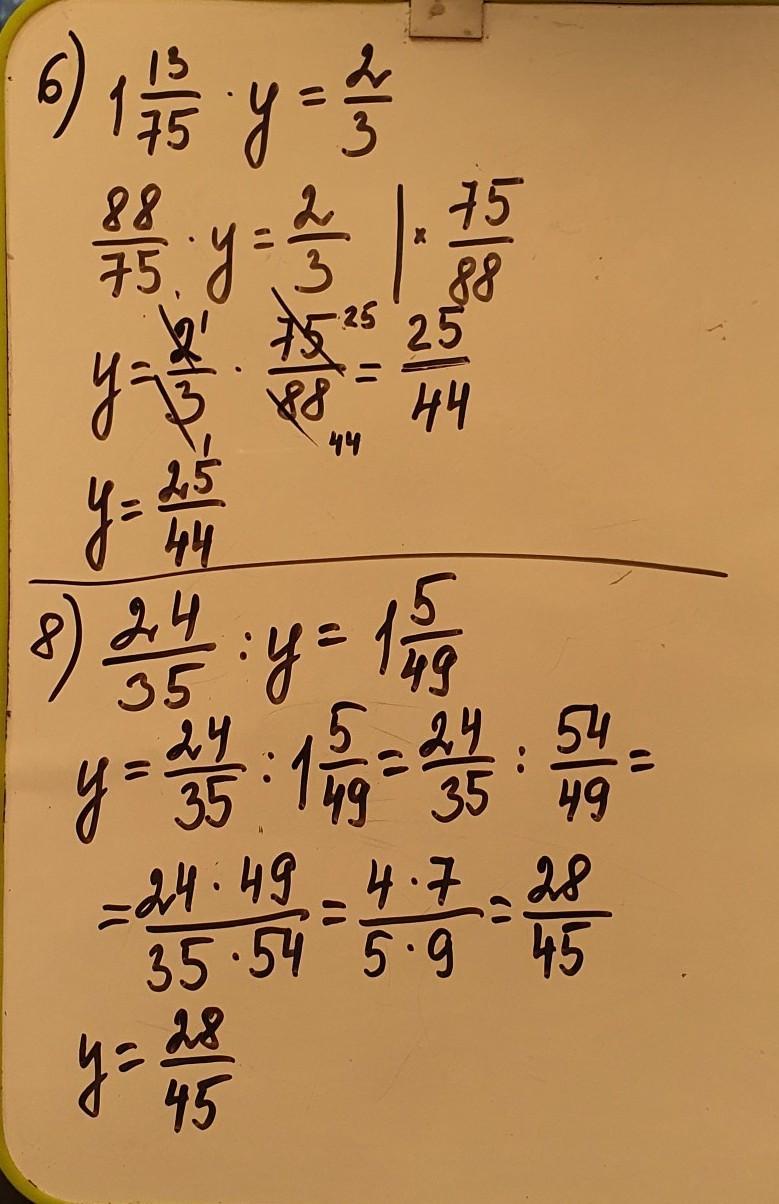 6) 1 13/75 · y = 2/3
88/75 · y = 2/3 | × 75/88
y = 2 1/3 1 · 75 25/88 44 = 25/44
y = 25/44
8) 24/35 : y = 1 5/49
y = 24/35 : 1 5/49 = 24/35 : 54/49 =
= 24 · 49/35 · 54 = 4 · 7/5 · 9 = 28/45
y = 28/45